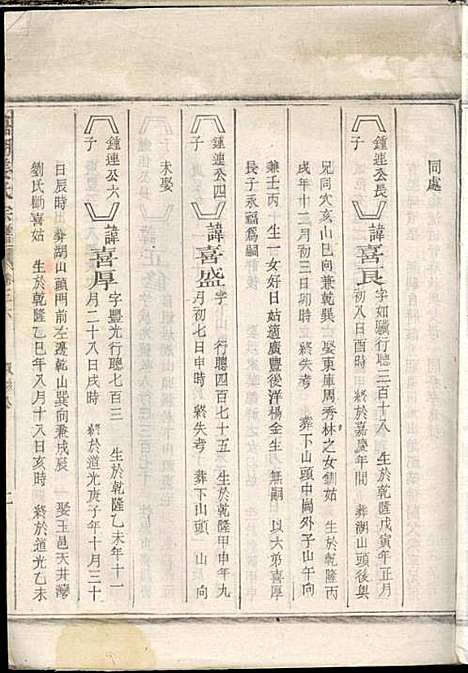 同處
鍾連公長子
諱喜良
字如驥行聰三百十八 生於乾隆戊寅年正月
初八日酉時 終於嘉慶年間 葬湖山頭後與
兄同穴亥山巳向兼乾巽 娶東庫周秀林之女鈿姑 生於乾隆丙
戌年十二月初三日卯時 終失考 葬下山頭中崗外子山午向
兼壬丙 生一女好日姑適廣豐後洋楊金生 無嗣 以六弟喜厚
長子永福爲嗣
鍾連公四子
諱喜盛
字 行聰四百七十五 生於乾隆甲申年九
月初七日申時 終失考 葬下山頭 山 向
未娶
鍾連公六子
諱喜厚
字豐光行聰七百三 生於乾隆乙未年十一
月二十八日戌時 終於道光庚子年十月三十
日辰時 葬湖山頭門前左邊乾山巽向兼戌辰 娶玉邑天井灣
劉氏勤喜姑 生於乾隆乙巳年八月十八日亥時 終於道光乙未